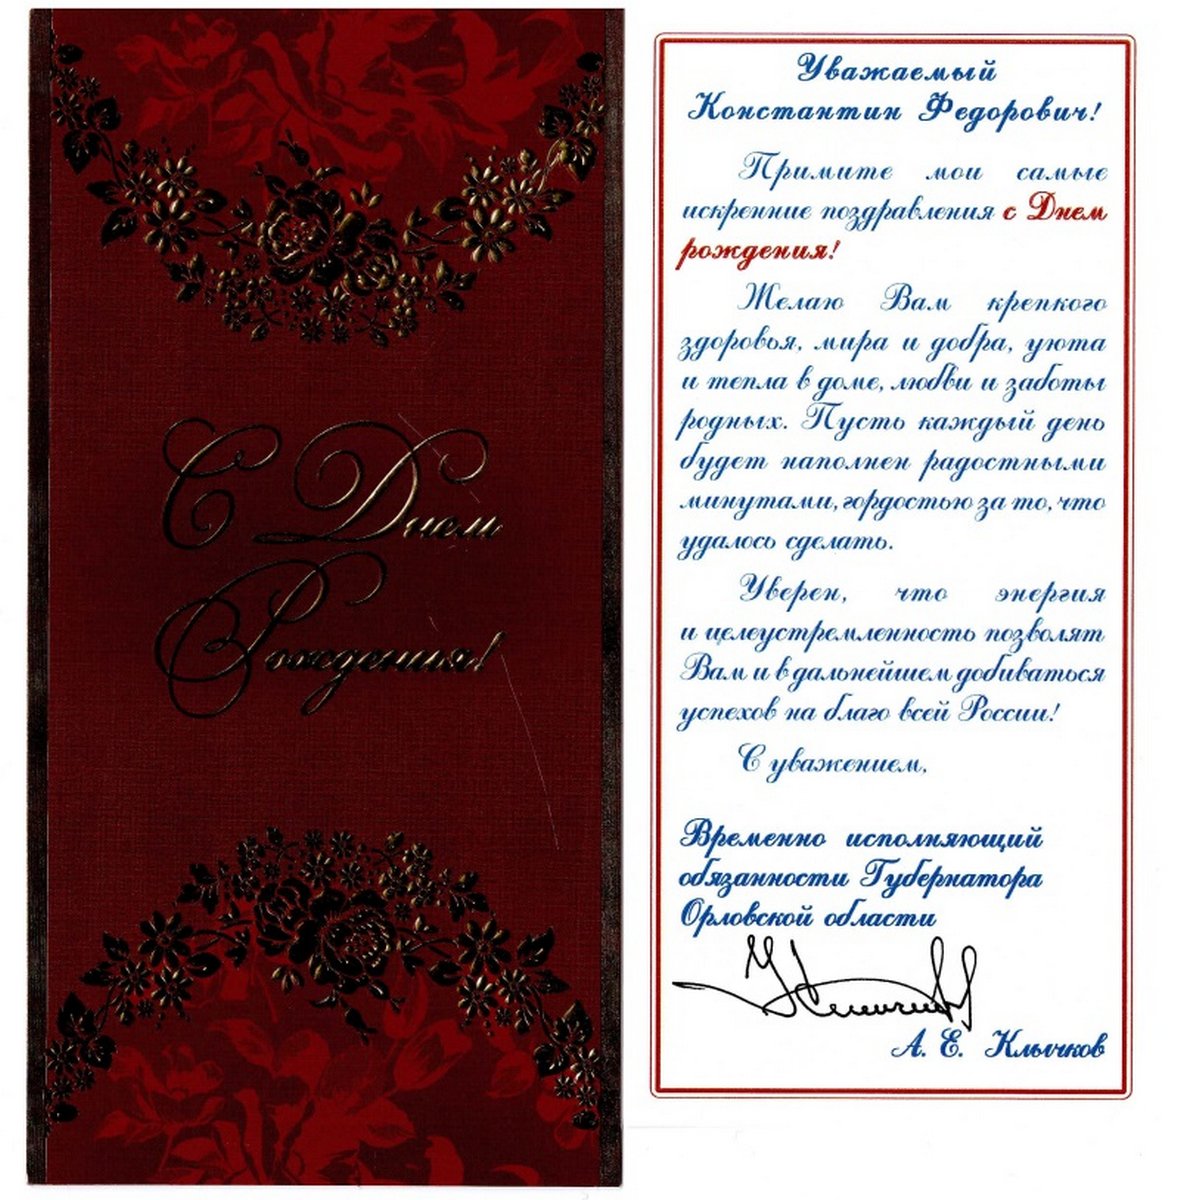 С Днем
Рождения!
Уважаемый
Константин Федорович!
Примите мои самые
искренние поздравления с Днем
рождения!
Желаю Вам крепкого
здоровья, мира и добра, уюта
и тепла в доме, любви и заботы
родных. Пусть каждый день
будет наполнен радостными
минутами, гордостью за то, что
удалось сделать.
Уверен, что энергия
и целеустремленность позволят
Вам и в дальнейшем добиваться
успехов на благо всей России!
С уважением,
Временно исполняющий
обязанности Губернатора
Орловской области
А. Е. Клычков